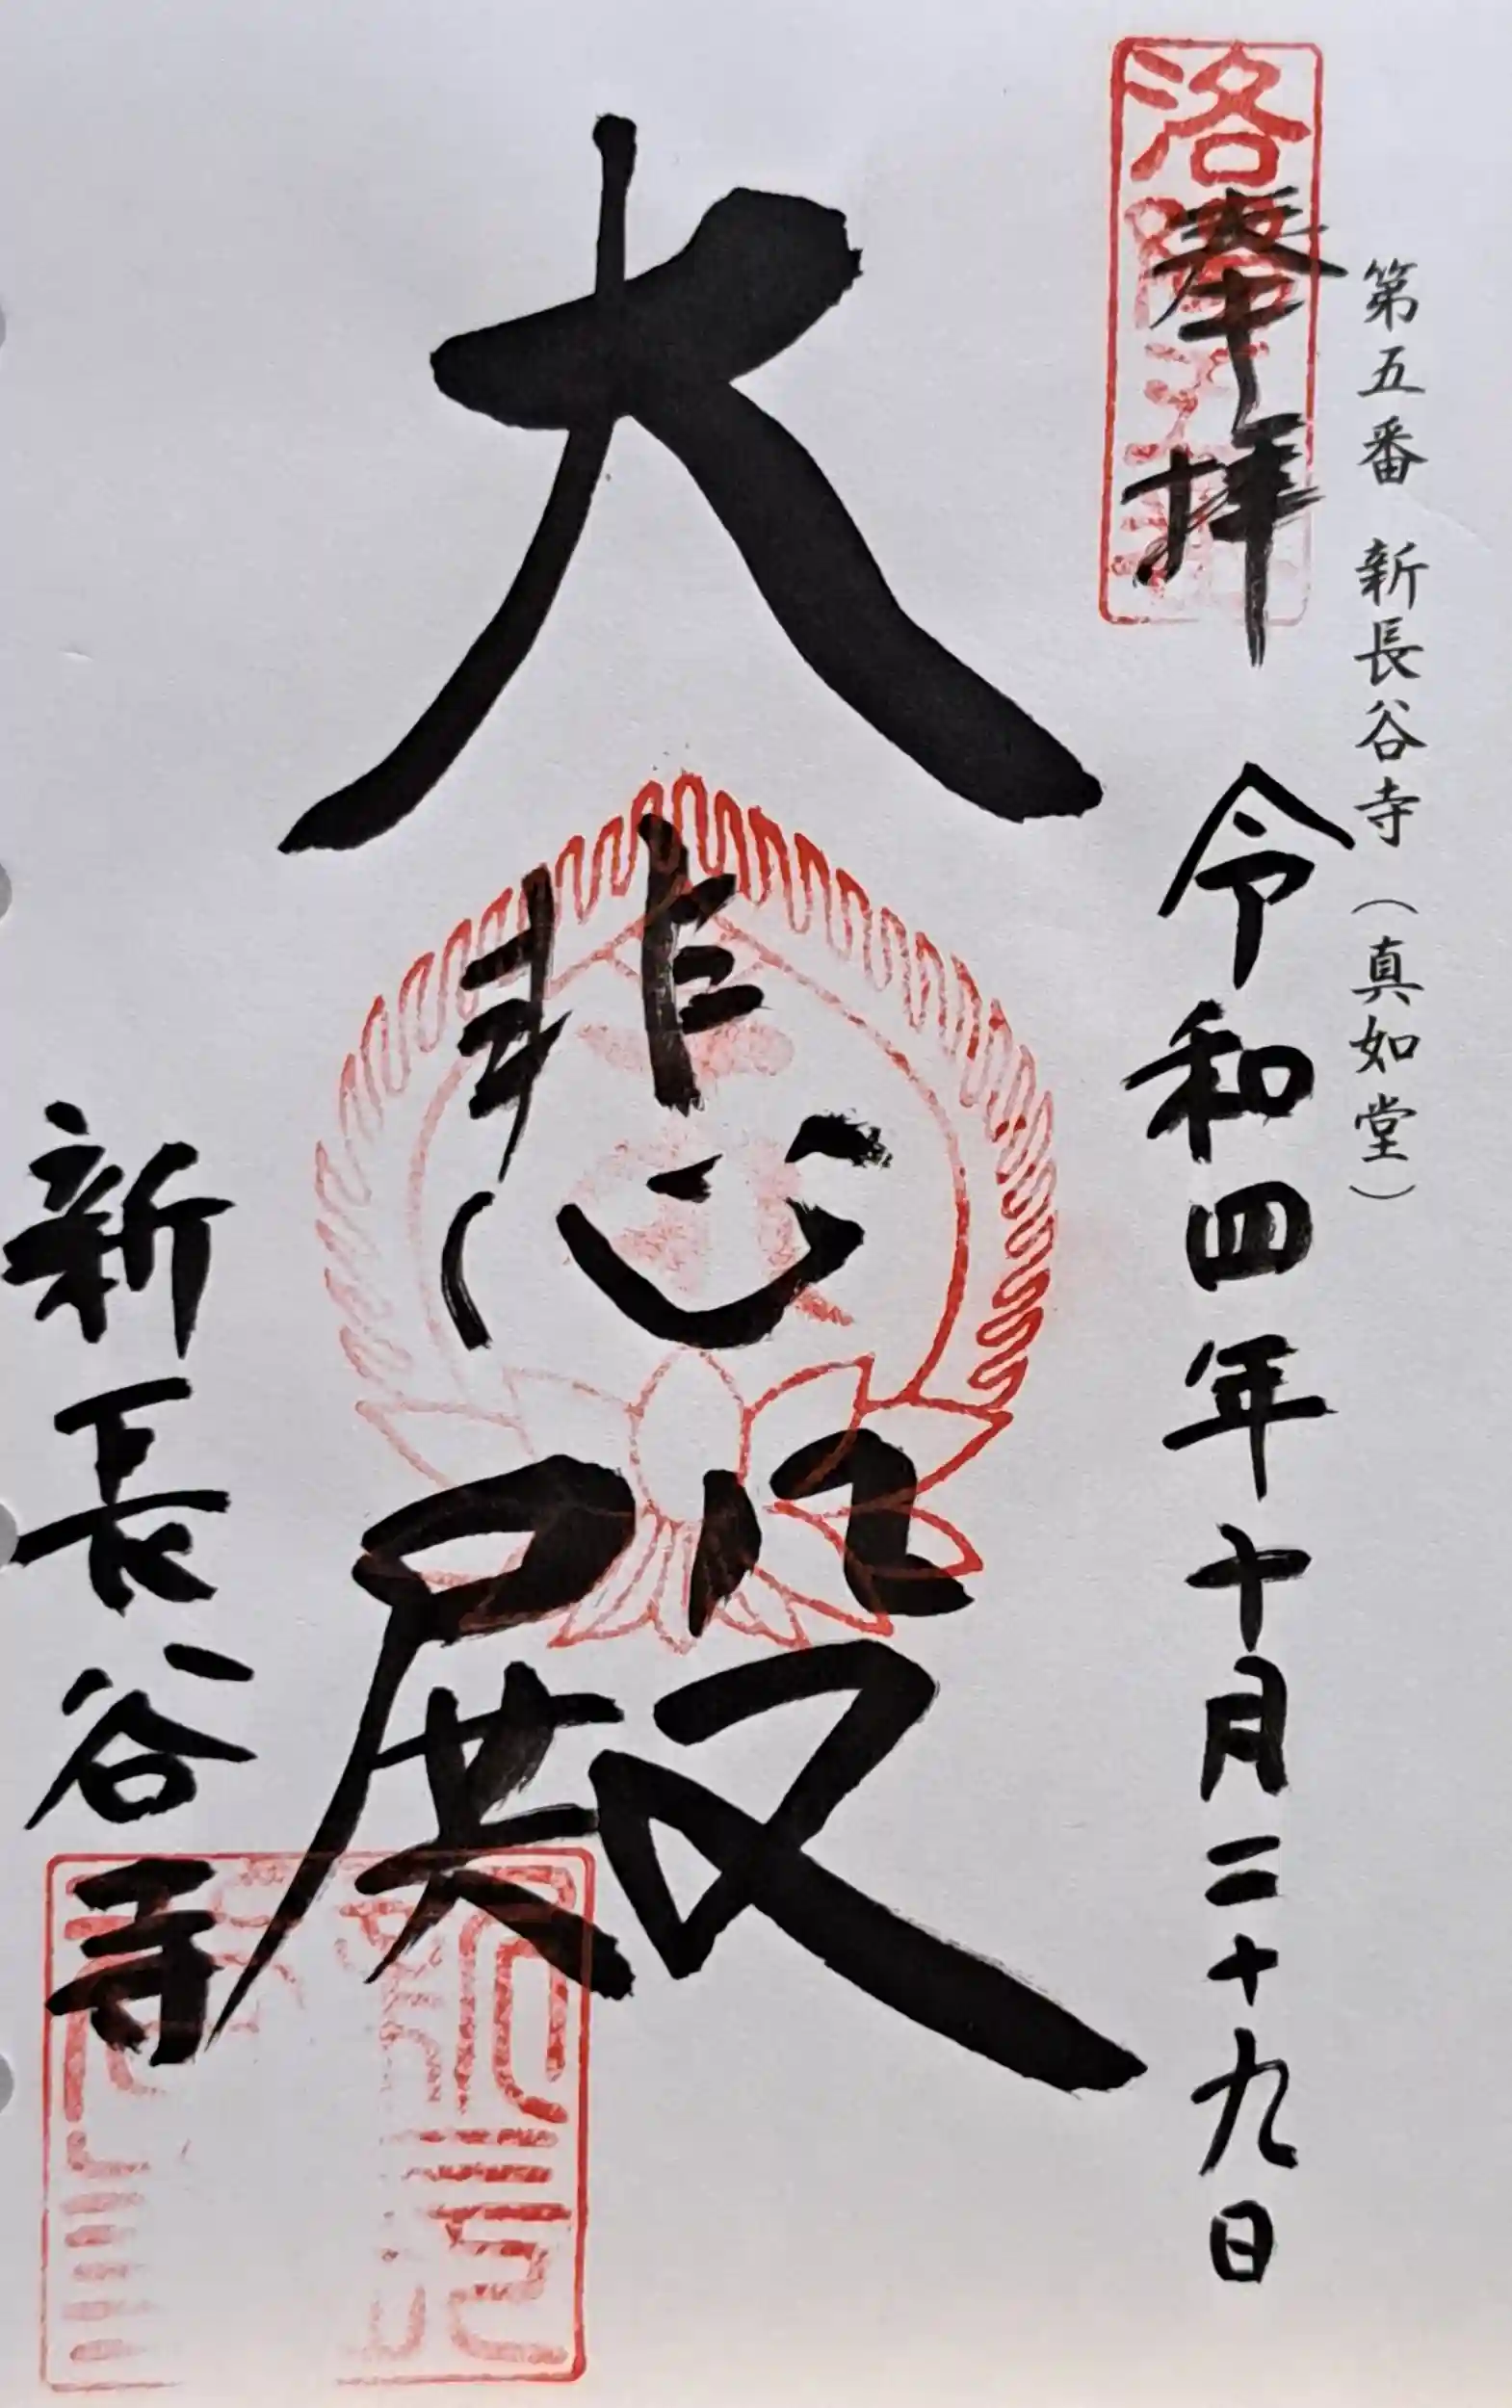 第五番 新長谷寺(真如堂)
奉拝 令和四年十月二十九日
洛
大悲殿
新長谷寺